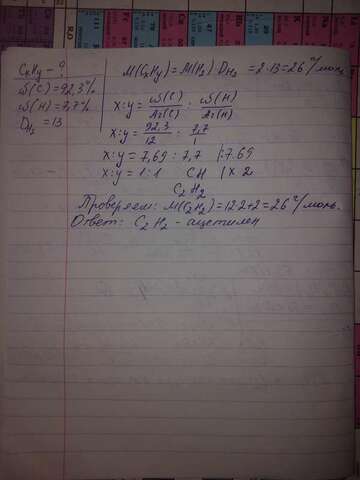 CxHy - ?
ω(C) = 92,3%
ω(H) = 7,7%
D H2 = 13
M(CxHy) = M(H2) D H2 = 2·13 = 26 г/моль
x:y = ω(C)/Ar(C) : ω(H)/Ar(H)
x:y = 92,3/12 : 7,7/1
x:y = 7,69 : 7,7 | :7.69
x:y = 1:1 CH | x 2
C2H2
Проверяем: M(C2H2) = 12·2+2 = 26 г/моль.
Ответ: C2H2 - ацетилен